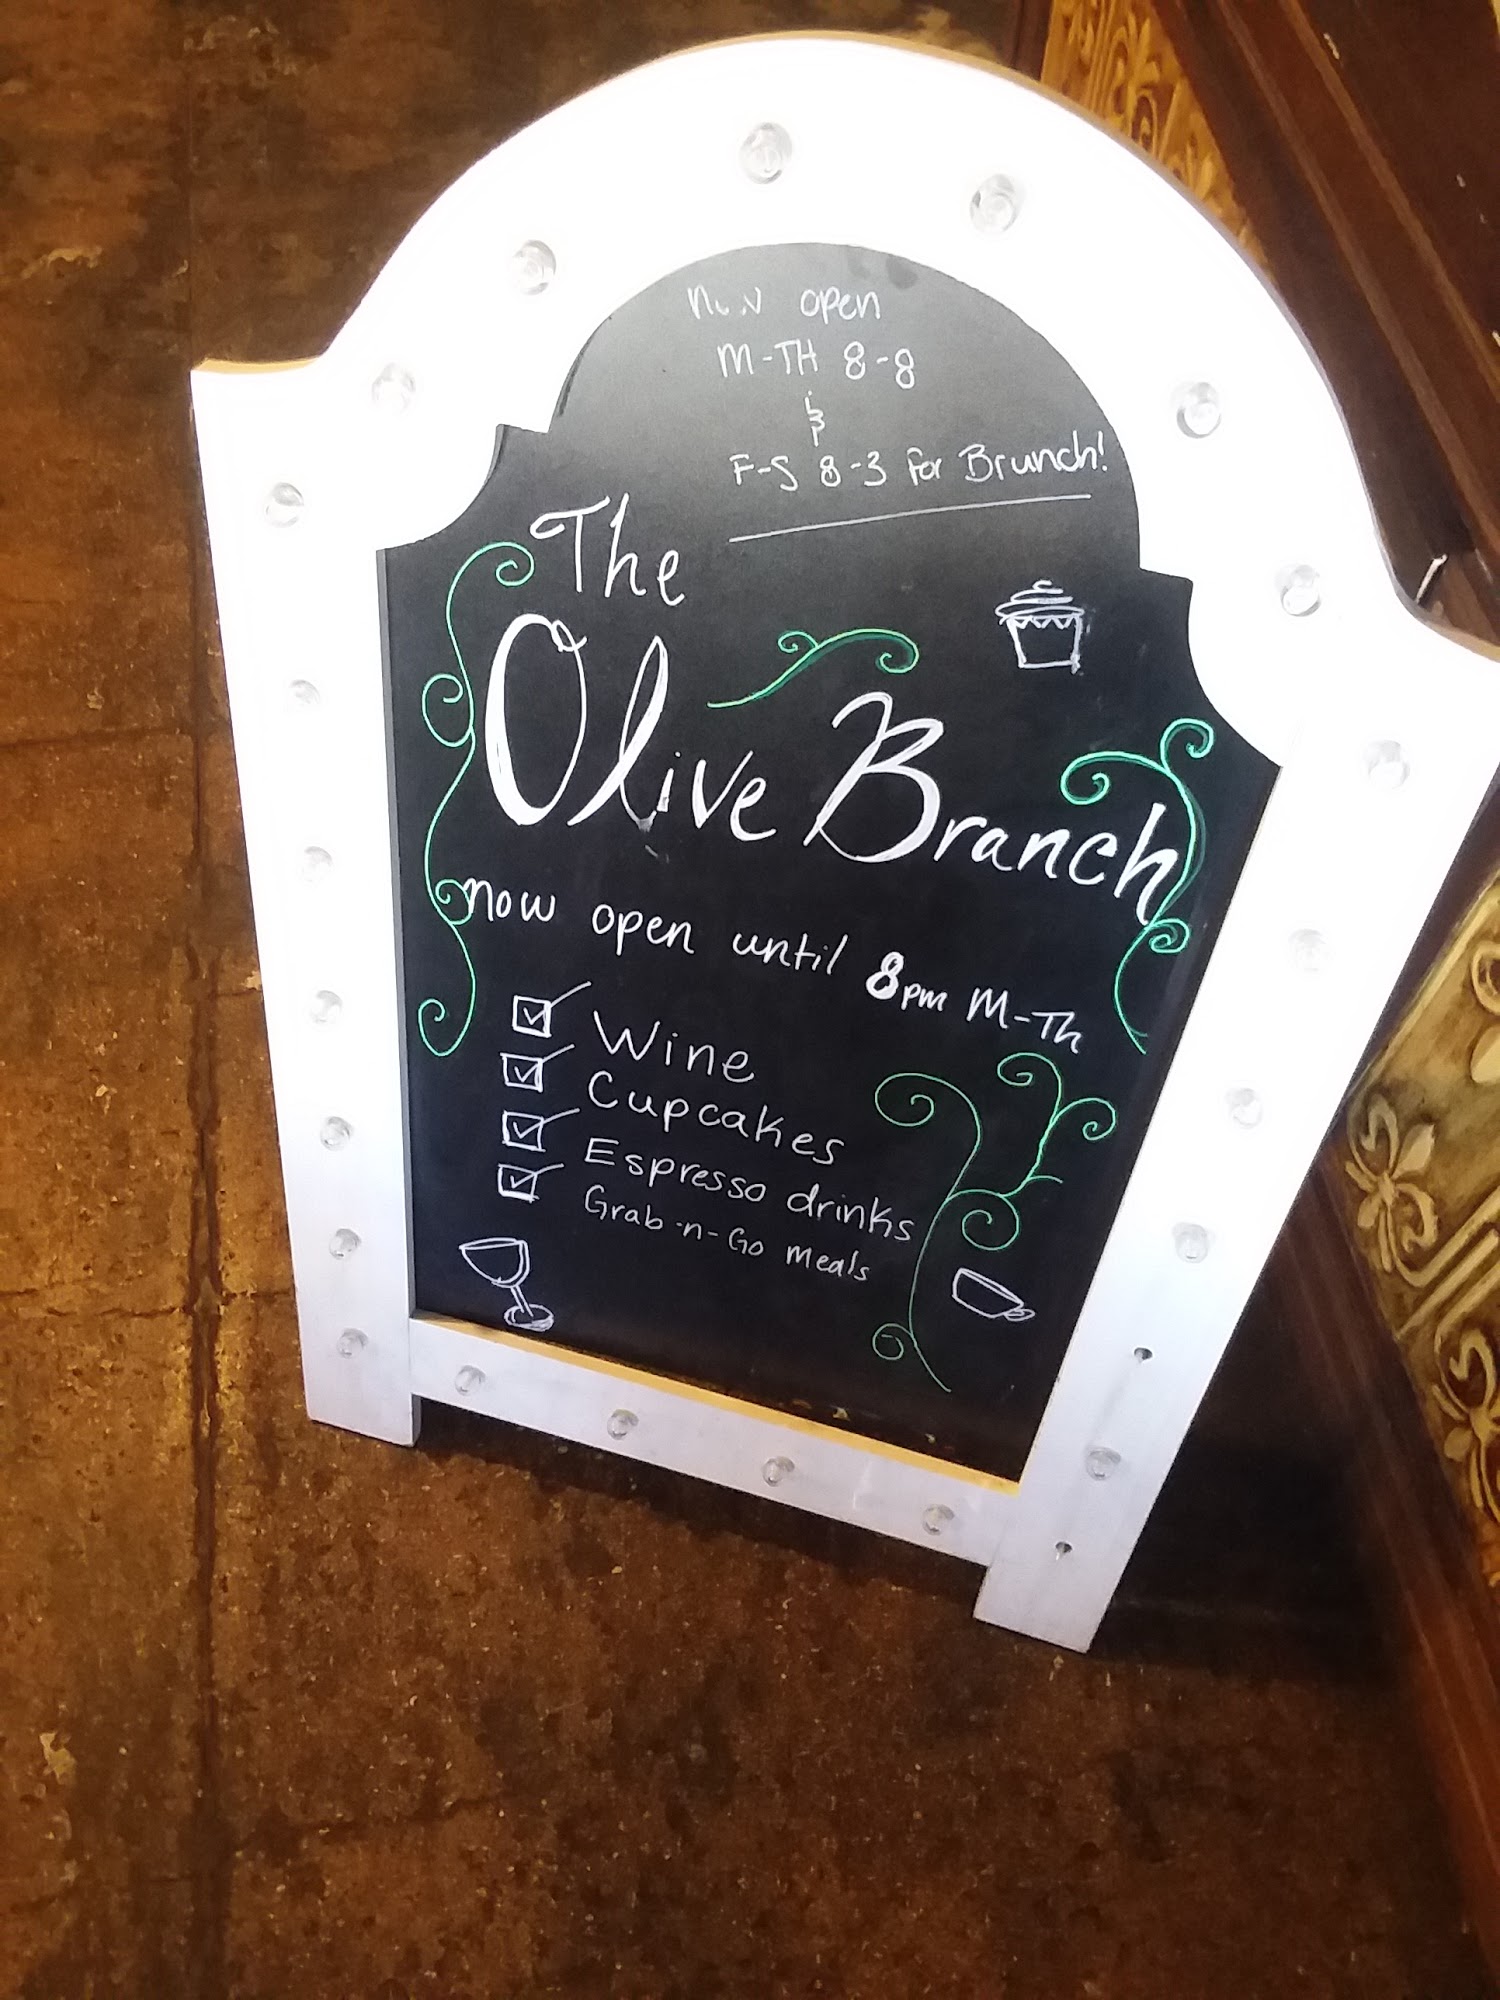 now open
M-TH 8-8
&
F-S 8-3 for Brunch!
The
Olive Branch
now open until 8pm M-Th
Wine
Cupcakes
Espresso drinks
Grab-n-Go meals